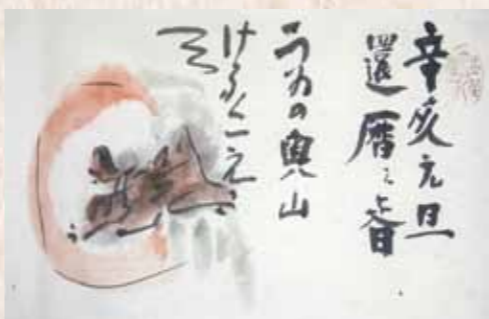 辛亥元旦
還暦
うゐの奥山
けふこえて